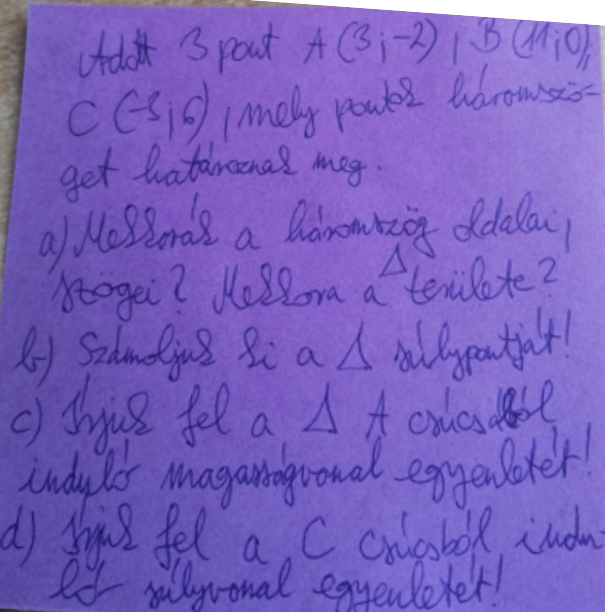 Adott 3 pont A (3;-2), B (11;0),
C (-3;6), mely pontok háromszö-
get határoznak meg.
a) Mekkorák a háromszög oldalai,
szögei? Mekkora a Δ területe?
b) Számoljuk ki a Δ súlypontját!
c) Írjuk fel a Δ A csúcsából
induló magasságvonal egyenletét!
d) Írjuk fel a C csúcsból indu-
ló súlyvonal egyenletét!